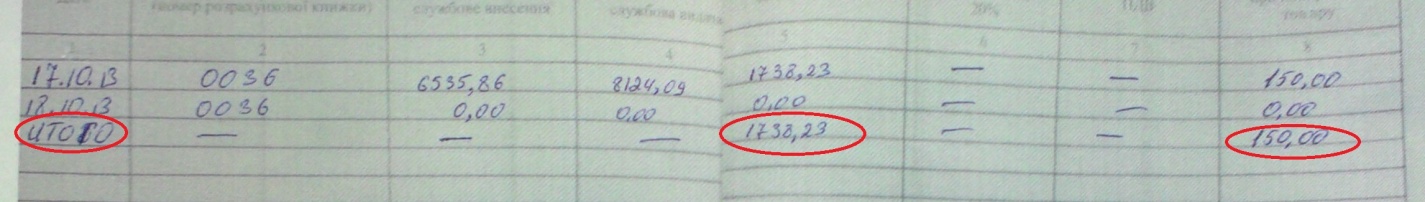 (номер розрахункової книжки) службове внесення службова видача 20% ПДВ товару
1 2 3 4 5 6 7 8
17.10.13 0036 6535,86 8124,09 1738,23 — — 150,00
18.10.13 0036 0,00 0,00 0,00 — — 0,00
ИТОГО — — — 1738,23 — — 150,00